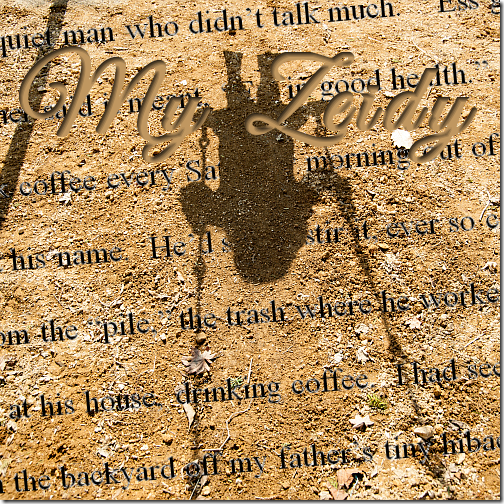 quiet man who didn't talk much. Ess
My Zeidy
in good health."
coffee every Sa morning out of
his name. He'll s stir it, ever so
om the "pile," the trash where he worke
at his house, drinking coffee. I had see
n the backyard off my father's tiny hibac